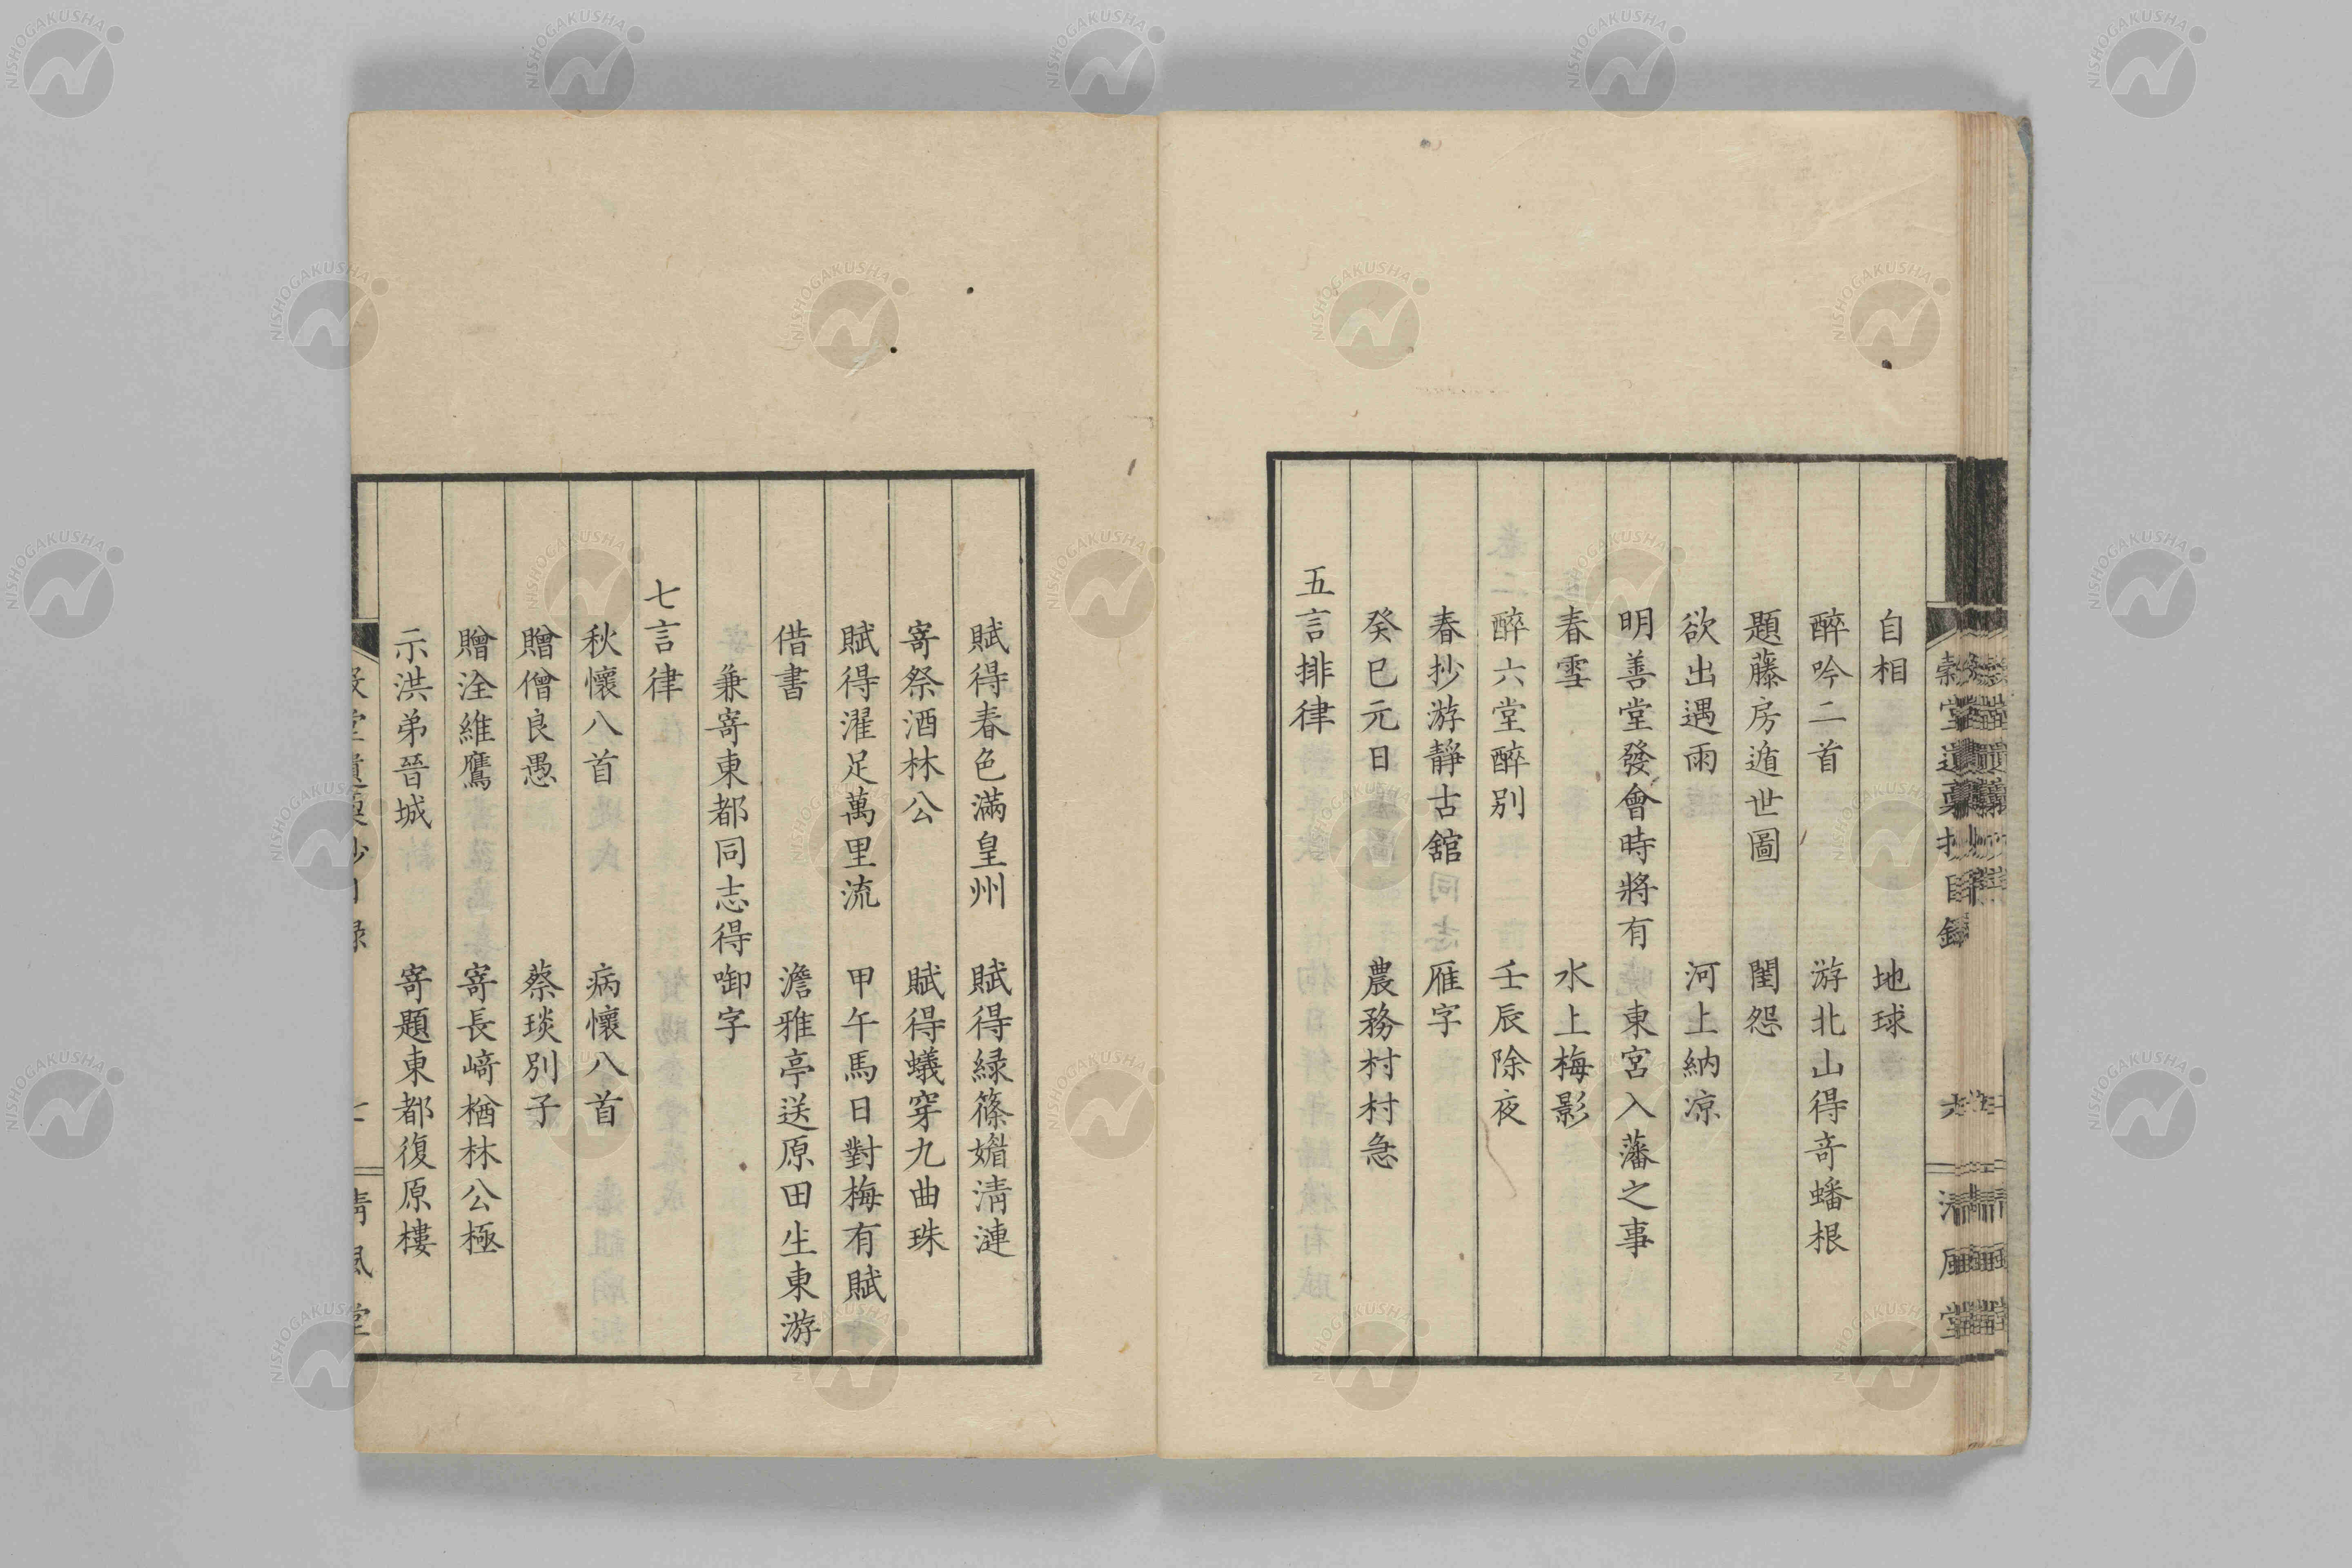 自相　地球
醉吟二首　游北山得奇蟠根
題藤房遁世圖　閨怨
欲出遇雨　河上納涼
明善堂發會時將有東宮入藩之事
春雪　水上梅影
醉六堂醉別　壬辰除夜
春抄游靜古舘　雁字
癸巳元日　農務村村急
五言排律
堂遺稾抄目錄　六　清風堂
賦得春色滿皇州　賦得緑篠媚清漣
寄祭酒林公　賦得蟻穿九曲珠
賦得濯足萬里流　甲午馬日對梅有賦
借書　澹雅亭送原田生東游
兼寄東都同志得啣字
七言律
秋懷八首　病懷八首
贈僧良愚　蔡琰別子
贈淦維鷹　寄長﨑楢林公極
示洪弟晉城　寄題東都復原樓
NISHOGAKUSHA